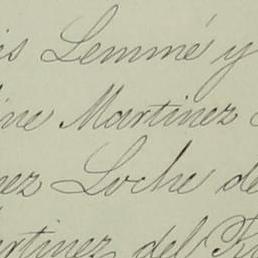 is Lemmé y
ine Martinez
nez Loche de
artinez del R